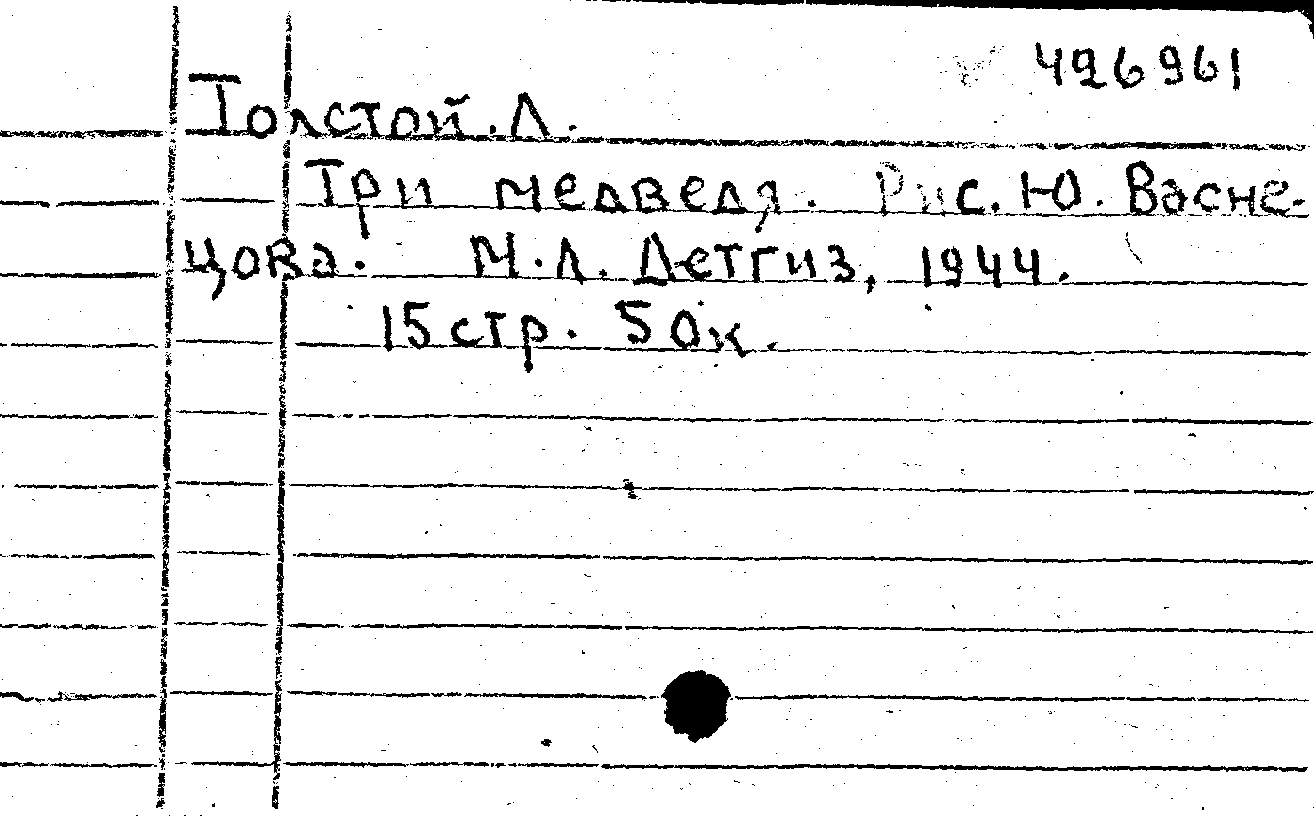 426961
Толстой. Л.
Три медведя. Рис. Ю. Васне-
цова. М.Л. Детгиз, 1944.
15 стр. 50к.